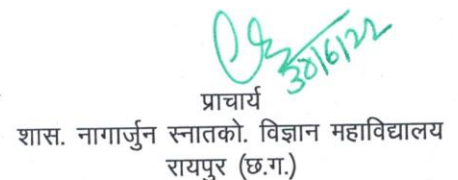 30/6/22
प्राचार्य
शास. नागार्जुन स्नातको. विज्ञान महाविद्यालय
रायपुर (छ.ग.)